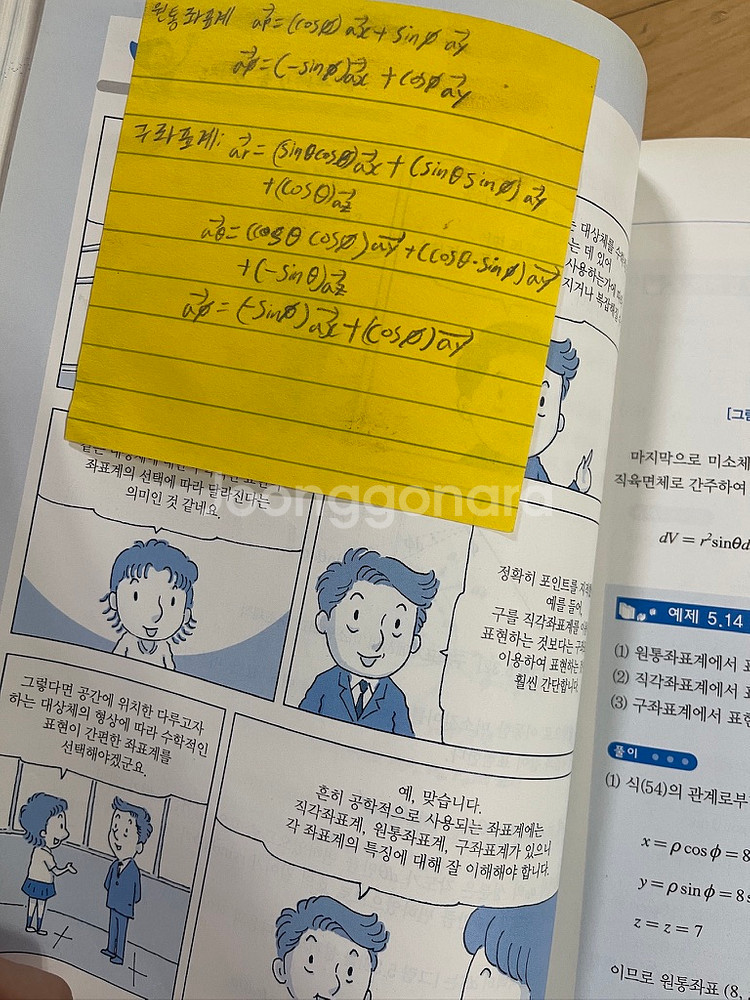 원통좌표계 a⃗ρ=(cosφ)a⃗x+sinφ a⃗y
a⃗φ=(-sinφ)a⃗x+cosφ a⃗y
구좌표계: a⃗r=(sinθcosθ)a⃗x+(sinθsinφ)a⃗y
+(cosθ)a⃗z
a⃗θ=(cosθ cosφ)a⃗y+(cosθ·sinφ)a⃗y
+(-sinθ)a⃗z
a⃗φ=(-sinφ)a⃗x+(cosφ)a⃗y
대상체를
는 데 있어
사용하는가에
지거나
좌표계의 선택에 따라 달라진다는
의미인 것 같네요.
loonggonara
정확히 포인트를
예를 들어,
구를 직각좌표계를
표현하는 것보다는
이용하여 표현하는
훨씬 간단합니다
그렇다면 공간에 위치한 다루고자
하는 대상체의 형상에 따라 수학적인
표현이 간편한 좌표계를
선택해야겠군요.
예, 맞습니다.
흔히 공학적으로 사용되는 좌표계에는
직각좌표계, 원통좌표계, 구좌표계가 있으니
각 좌표계의 특징에 대해 잘 이해해야 합니다.
[그림
마지막으로 미소체
직육면체로 간주하여
dV = r²sinθd
예제 5.14
(1) 원통좌표계에서
(2) 직각좌표계에서
(3) 구좌표계에서 표현
풀이
(1) 식(54)의 관계로부
x = ρ cos φ = 8
y = ρ sin φ = 8s
z = z = 7
이므로 원통좌표 (8,